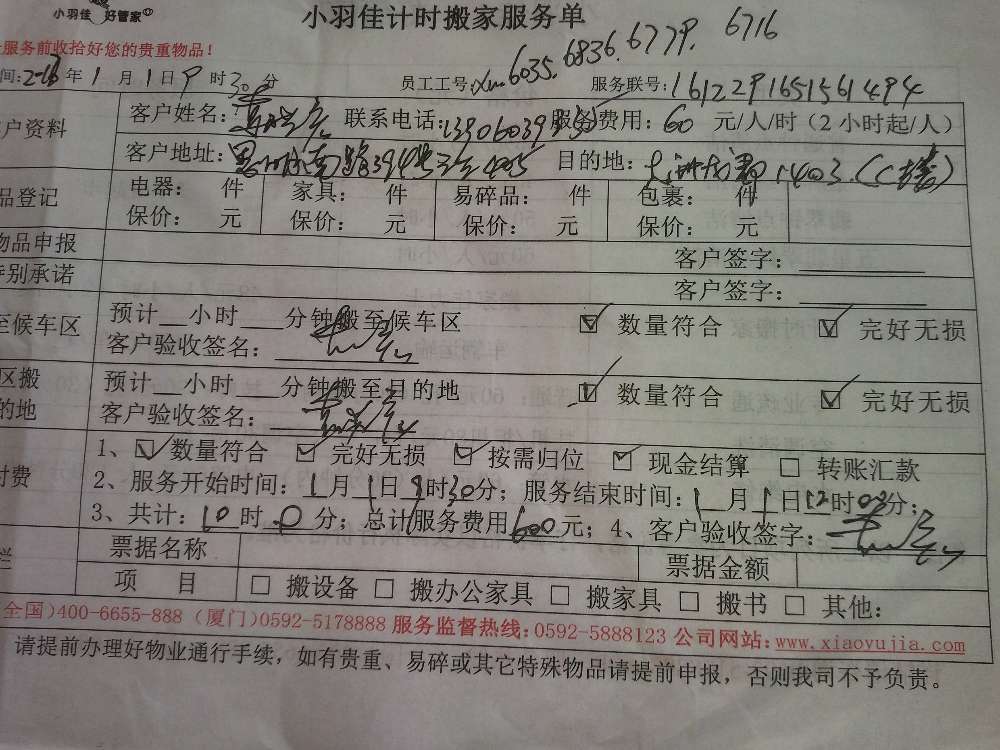 小羽佳 好管家
小羽佳计时搬家服务单
服务前收拾好您的贵重物品！
年1月1日9时30分 员工工号：xm6035.6836.6779.6716 服务联号：1612291651561494
户资料 客户姓名： 联系电话：13906039 服务费用：60 元/人/时（2小时起/人）
客户地址： 目的地： 1403.(C
品登记 电器： 件 家具： 件 易碎品： 件 包裹： 件
保价： 元 保价： 元 保价： 元 保价： 元
物品申报 客户签字：
特别承诺 客户签字：
至候车区 预计__小时___分钟搬至候车区 ☑ 数量符合 ☑ 完好无损
客户验收签名：
区搬 预计__小时___分钟搬至目的地 ☑ 数量符合 ☑ 完好无损
的地 客户验收签名：
付费 1、☑数量符合 ☑ 完好无损 ☑ 按需归位 ☑ 现金结算 □ 转账汇款
2、服务开始时间：1月1日9时30分；服务结束时间：1月1日12时00分；
3、共计：10时0分；总计服务费用600元；4、客户验收签字：
栏 票据名称 票据金额
项 目 □ 搬设备 □ 搬办公家具 □ 搬家具 □ 搬书 □ 其他：
全国)400-6655-888 (厦门)0592-5178888 服务监督热线：0592-5888123 公司网站：www.xiaoyujia.com
请提前办理好物业通行手续，如有贵重、易碎或其它特殊物品请提前申报，否则我司不予负责。